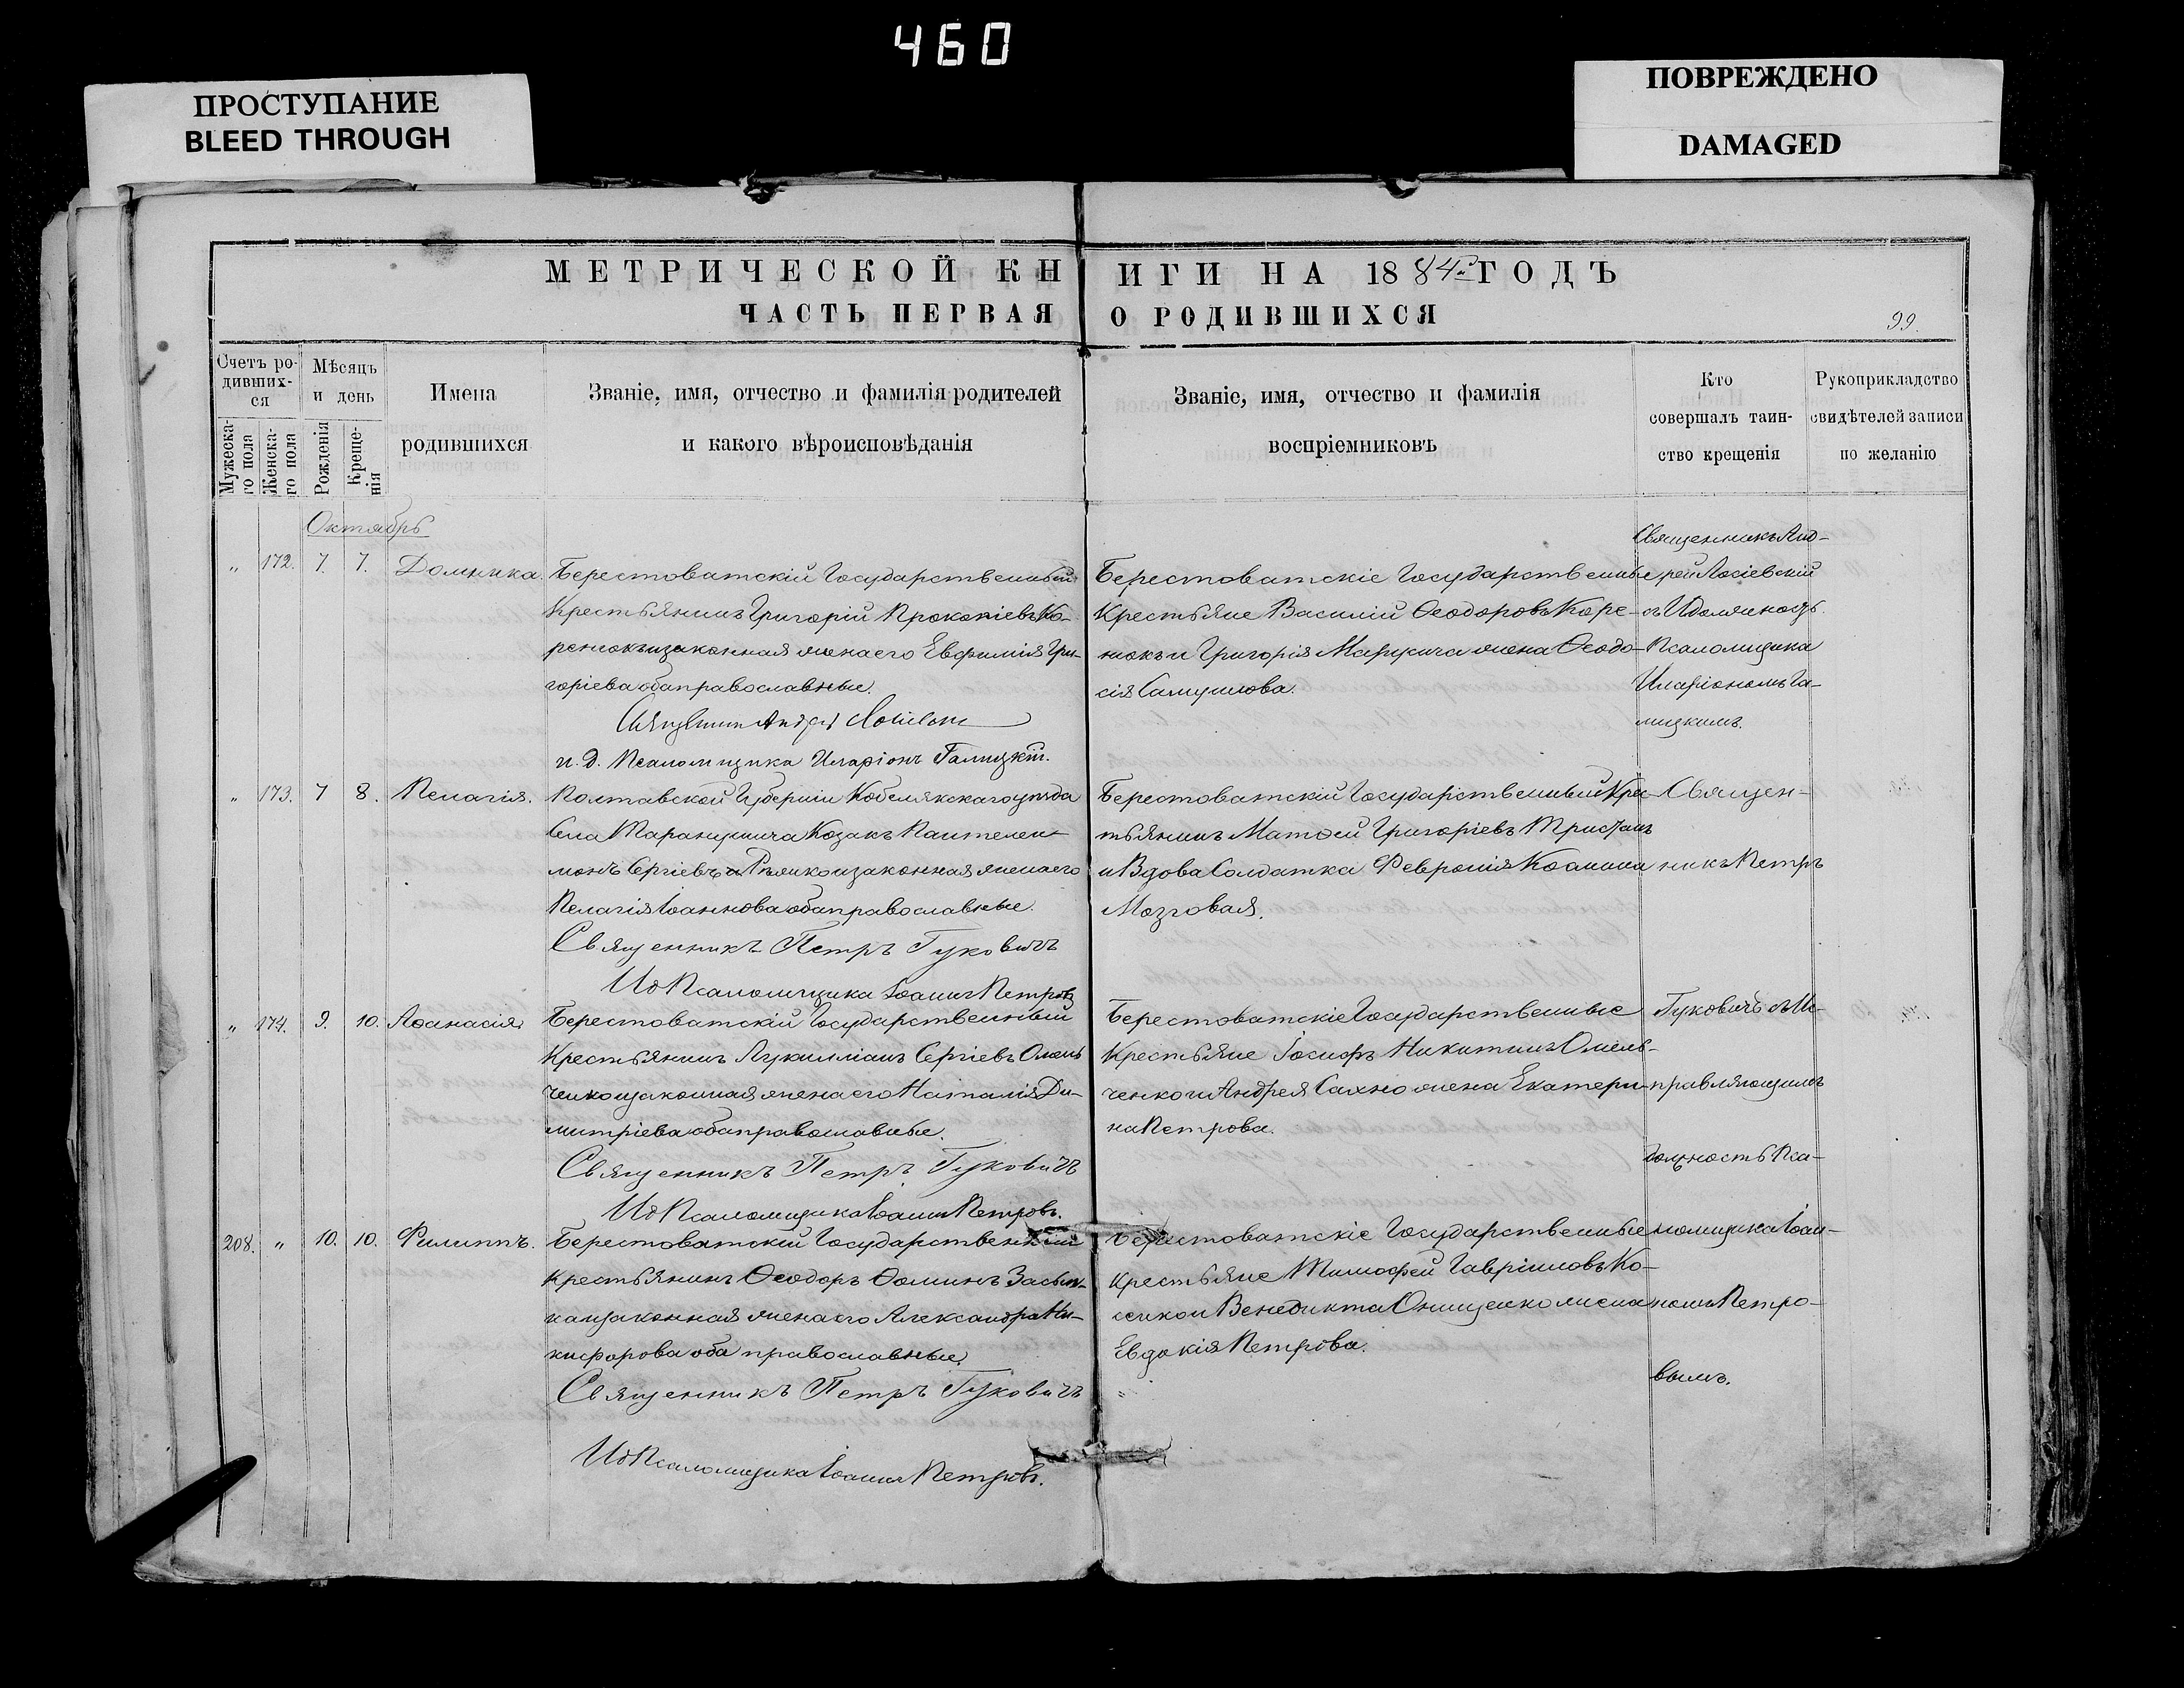 460
ПРОСТУПАНИЕ
BLEED THROUGH
ПОВРЕЖДЕНО
DAMAGED
МЕТРИЧЕСКОЙ КНИГИ НА 1884й ГОДЪ
ЧАСТЬ ПЕРВАЯ О РОДИВШИХСЯ
99.
Счетъ ро-
дивших-
ся
Мужеска-
го пола
Женска-
го пола
Мѣсяцъ
и день
Рожденія
Креще-
нія
Имена
родившихся
Званіе, имя, отчество и фамилія родителей
и какого вѣроисповѣданія
Званіе, имя, отчество и фамилія
воспріемниковъ
Кто
совершалъ таин-
ство крещенія
Рукоприкладство
свидѣтелей записи
по желанію
Октябрь
„ 172. 7. 7. Домника.
Берестоватскій Государственный
Крестьянинъ Григорій Прокопіевъ Ко-
ренюкъ и законная жена его Евфимія Гри-
горіева оба православные.
Священник Андрей
и. д. Псаломщика Иларіонъ Галицкій.
Берестоватскіе Государственные
Крестьяне Василій Ѳеодоровъ Коре-
нюкъ и Григорія жена Ѳеодо-
сія Самуилова.
Священникъ Анд-
рей Лосіевскій
Псаломщика
Иларіономъ Га-
лицкимъ.
„ 173. 7 8. Пелагія.
Полтавской Губерніи Кобелякскаго уѣзда
Села Козакъ Пантелеи-
монъ Сергіевъ и законная жена его
Пелагія Іоаннова оба православные.
Священникъ Петръ Гуковичъ
ИдПсаломщика Іоаннъ Петровъ
Берестоватскій Государственный Крес-
тьянинъ Матѳей Григоріевъ
и Вдова Солдатка Февронія
Мозговая.
Священ-
никъ Петръ
„ 174. 9. 10. Аѳанасія.
Берестоватскій Государственный
Крестьянинъ Лукилліанъ Сергіевъ Омель
ченко и законная жена его Наталія Ди-
митріева оба православные.
Священникъ Петръ Гуковичъ
ИдПсаломщика Іоаннъ Петровъ.
Берестоватскіе Государственные
Крестьяне Іосифъ Никитинъ Омель-
ченко и Андрея Сахно жена Екатери-
на Петрова.
Гуковичъ съ Ис-
правляющимъ
должность Пса-
208. „ 10. 10. Филиппъ.
Берестоватскій Государственный
Крестьянинъ Ѳеодоръ Ѳоминъ
и законная жена его Александра Ни-
кифорова оба православные.
Священникъ Петръ Гуковичъ
ИдПсаломщика Іоаннъ Петровъ.
Берестоватскіе Государственные
крестьяне Тимофей Гавріиловъ Ко-
и Венедикта Онищенко жена
Евдокія Петрова.
ломщика Іоан-
номъ Петро-
вымъ.